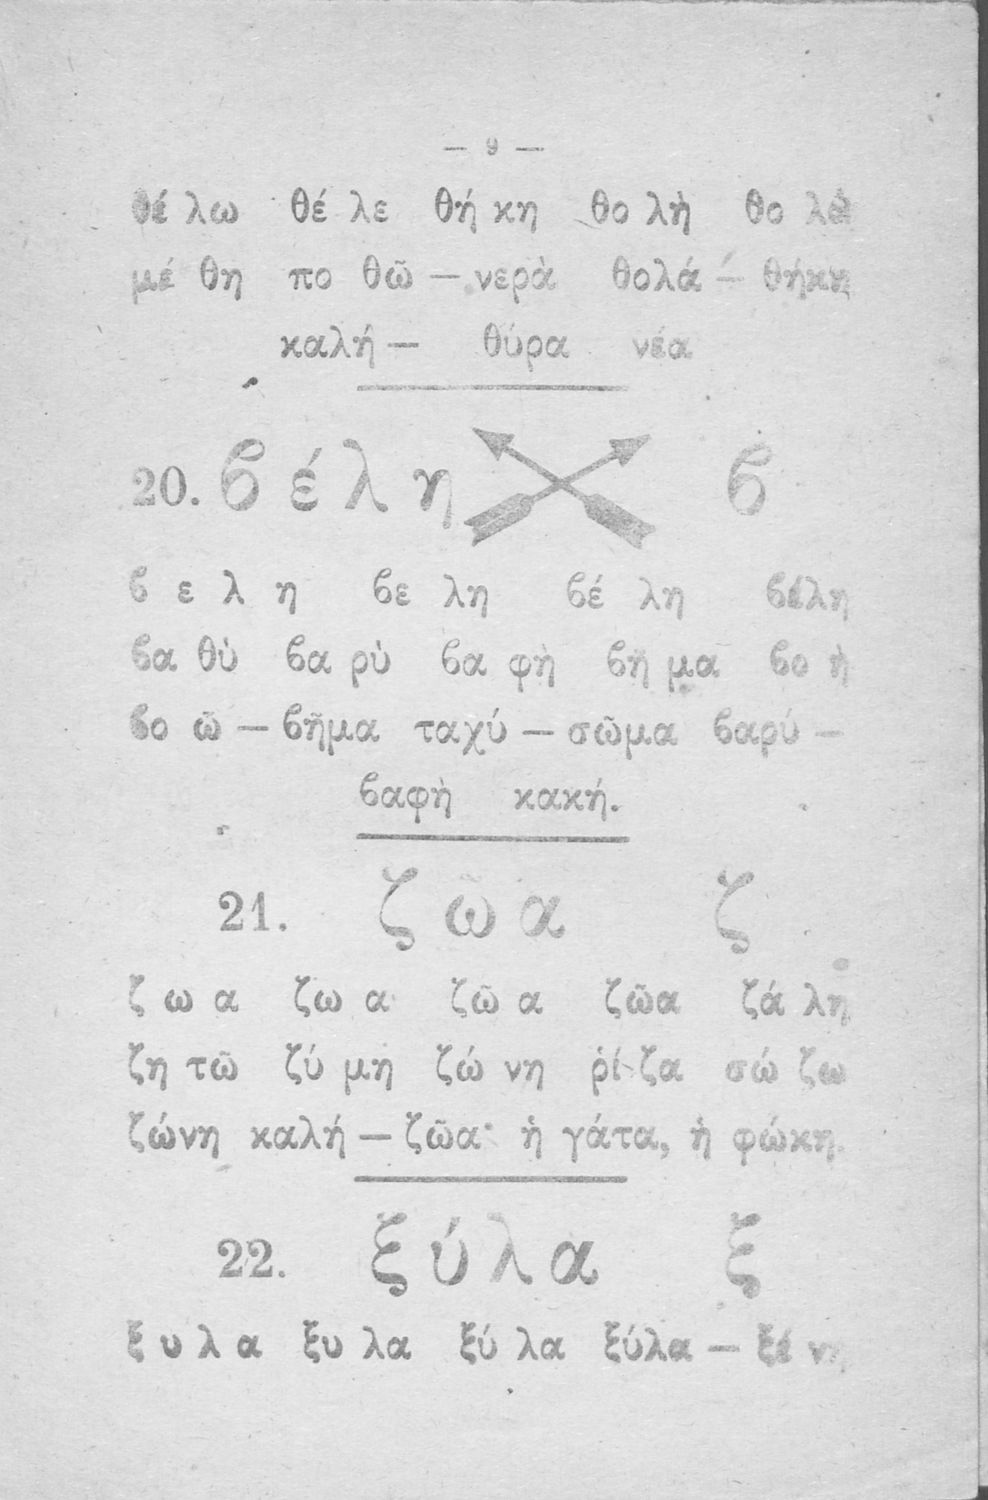 — 9 —
θέ λω θέ λε θή κη θο λὴ θο λὰ
μέ θη πο θῶ — νερὰ θολά — θήκη
καλή — θύρα νέα
20. ϐ έ λ η ϐ
ϐ ε λ η ϐε λη ϐέ λη ϐέλη
ϐα θὺ ϐα ρὺ ϐα φὴ ϐῆ μα ϐο ὴ
ϐο ῶ — ϐῆμα ταχύ — σῶμα ϐαρύ —
ϐαφὴ κακή.
21. ζ ῶ α ζ
ζ ω α ζω α ζῶ α ζῶα ζά λη
ζη τῶ ζύ μη ζώ νη ῥί ζα σώ ζω
ζώνη καλή — ζῶα· ἡ γάτα, ἡ φώκη.
22. ξ ύ λ α ξ
ξ υ λ α ξυ λα ξύ λα ξύλα — ξέ νη